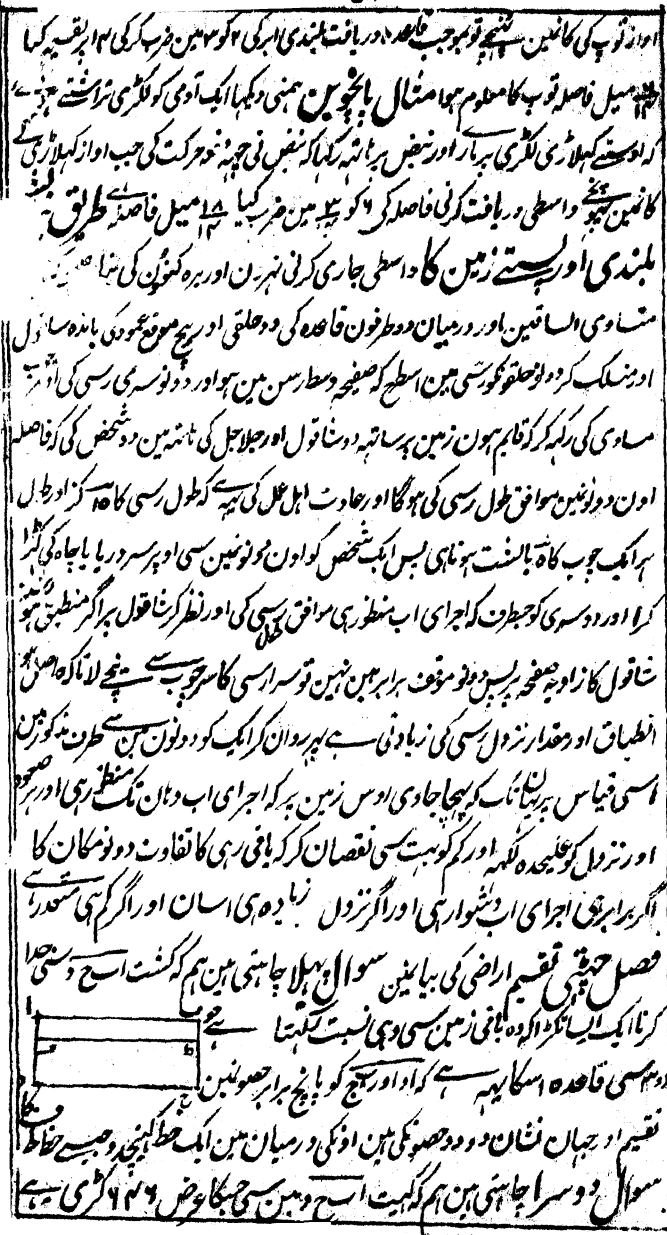 اواز توپ کی کانمین پہنچے تو بموجب قاعدہ دریافت بلندی ابر کی ۴ کو ۳ مین ضرب کر کی ۱۴ پر تقسیم کیا
میل فاصلہ توپ کا معلوم ہوا مثال پانچوین ہمنی دیکہا ایک آدمی کو لکڑی تراشتے ہوے
کہ اوسنے کہلاڑی لکڑی پر مار اور نبض پر ہاتہ رکہا کہ نبض نی چہہ دفعہ حرکت کی جب اواز کہلاڑی کے
کانمین پہونچے واسطی دریافت کرنی فاصلہ کی ۶ کو ۳ مین ضرب کیا میل فاصلہ ہے طریق
بلندی اور پستے زمین کا واسطی جاری کرنی نہرون اور برہ کنوؤن کی
متساوی الساقین اور درمیان دو طرفون قاعدہ کی دو حلقی اور بیچ موقع عمود کی باندہ شاقول
اور منسلک کر دونو حلقونکو رسّی مین اسطرح کہ صفیحہ وسط رسن مین ہو اور دونو سری رسی کی اوپر چوب
مساوی کی رکہہ کر کہ قایم ہون زمین پر ساتہہ دو شاقول اور جلاجل کی ہاتہہ مین دو شخص کی کہ فاصلہ
اون دونونمین موافق طول رسی کی ہوگا اور عادت اہل عمل کی یہہ ہے کہ طول رسی کا ۱۵ گز اور طول
ہر ایک چوب کا ۵ بالشت ہوتا ہی پس ایک شخص کو اون دونونمین سی اوپر سر دریا یا چاہ کی کہڑا
کر اور دوسری کو جسطرف کہ اجرای اب منظور ہی موافق رسی کی اور نظر کر شاقول پر اگر منطبق ہو
شاقول کا زاویہ صفیحہ پر پس دونو موقف برابر ہین نہین تو سرا رسی کا سر چوب سے نیچے لا تا کہ حاصل ہو
انطباق اور مقدار نزول رسی کی زیادتی ہے پہر روان کر ایک کو دونون مین سے طرف مذکور مین
اسی قیاس پر یہان تک کہ پہنچا جاوی اوس زمین پر کہ اجرای اب وہان تک منظور ہی اور ہر صعود
اور نزول کو علیحدہ لکہہ اور کم کو بہت سی نقصان کر کہ باقی رہی گا تفاوت دونو مکان کا
اگر برابر ہین اجرای اب دشوار ہی اور اگر نزول زیادہ ہی اسان اور اگر کم ہی متعذر ہے
فصل چہتی تقسیم اراضی کی بیانمین سوال پہلا چاہتی ہین ہم کہ کشت ا ب ح د سی جدا
کرنا ایک ایسا ٹکڑا کہ وہ باقی زمین سی وہی نسبت رکہتا ہے جو
دو سی قاعدہ اسکا یہہ ہے کہ ا د اور ب ح کو پانچ برابر حصونمین
تقسیم اور جہان نشان دو دو حصونکی ہین اونکی درمیان مین ایک خط کہینچو وجہ سے
سوال دوسرا چاہتی ہین ہم کہ کہیت ا ب ح د مین سی جسکا عرض ۶۴۶ کڑی ہے